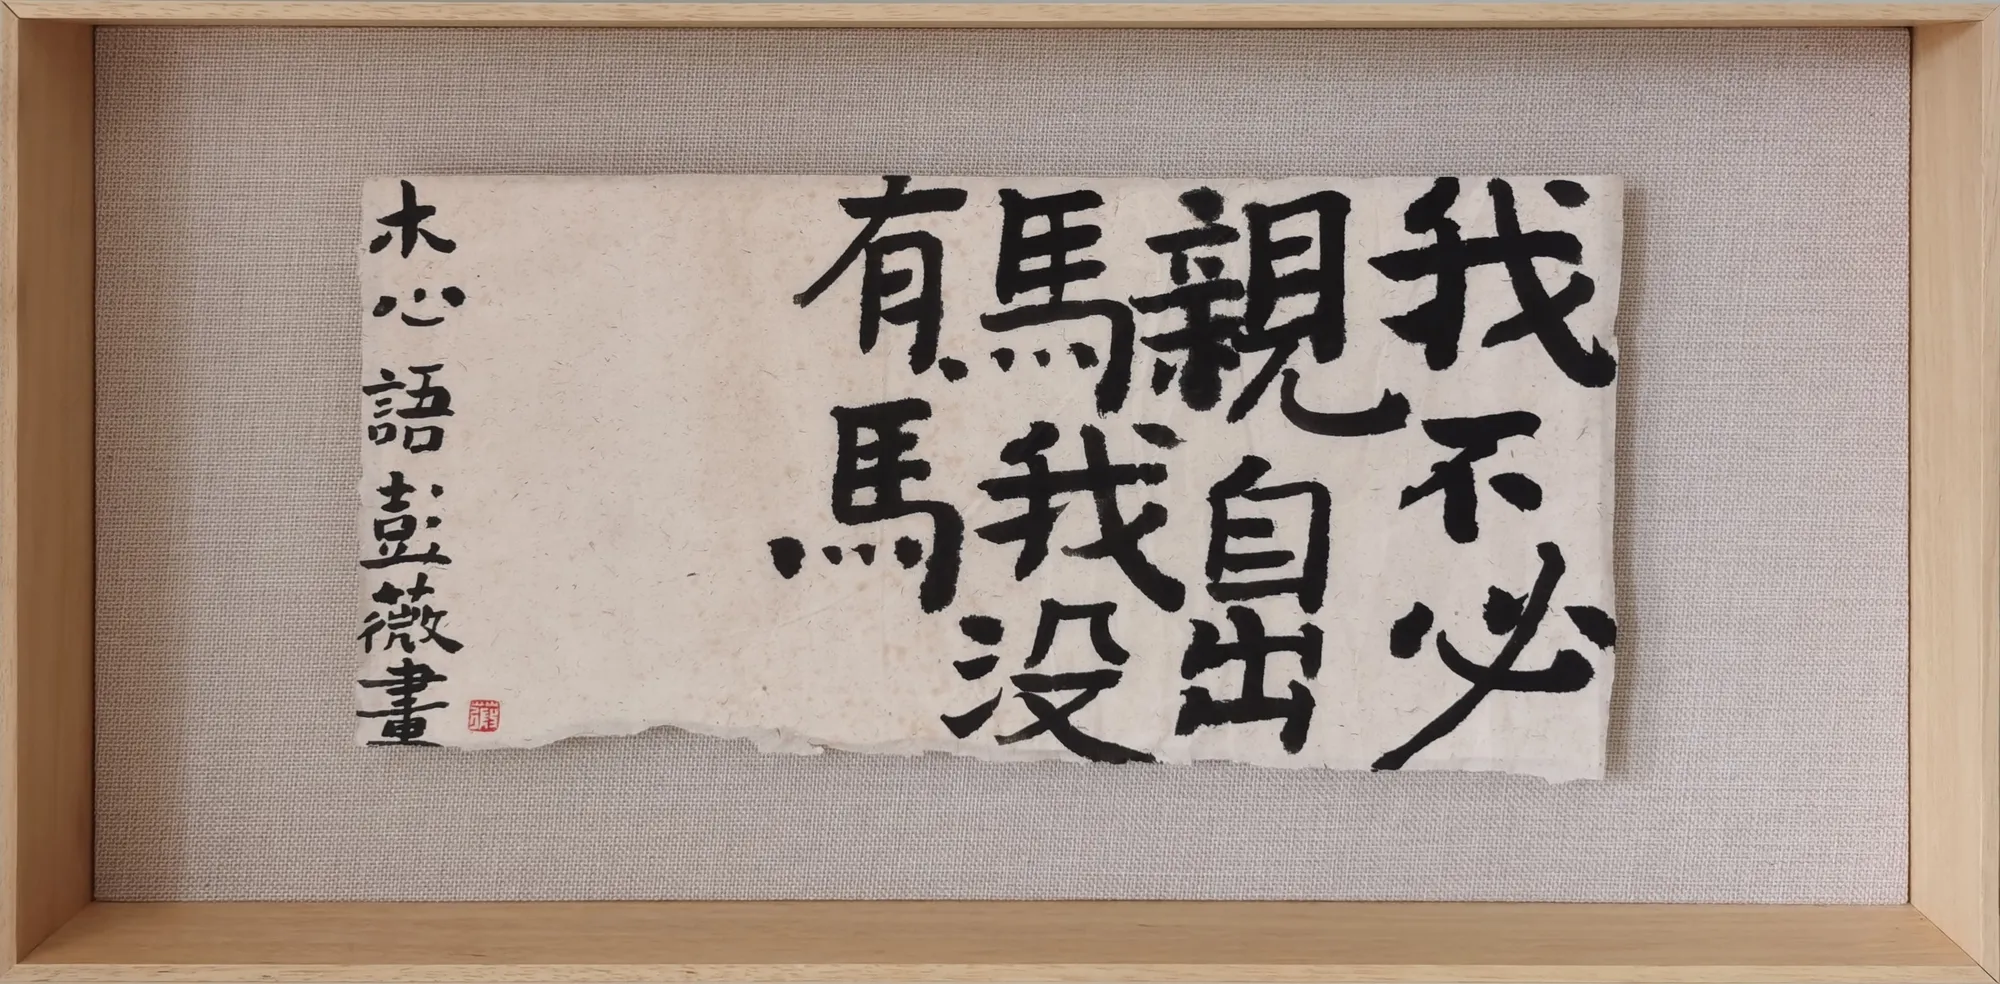 我不必
親自出
馬我没
有馬
木心語彭薇畫
薇